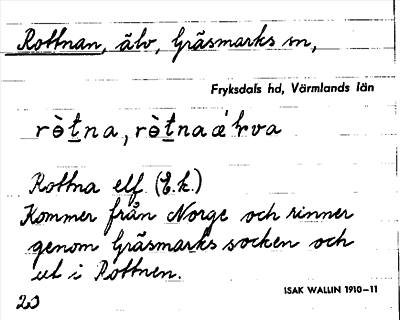 Rottnan, älv, Gräsmarks sn,
Fryksdals hd, Värmlands län
rò̀t̠na, rò̀t̠naæ̀ɽva
Rottna elf (E.k.)
Kommer från Norge och rinner
genom Gräsmarks socken och
ut i Rottnen.
ISAK WALLIN 1910–11
20